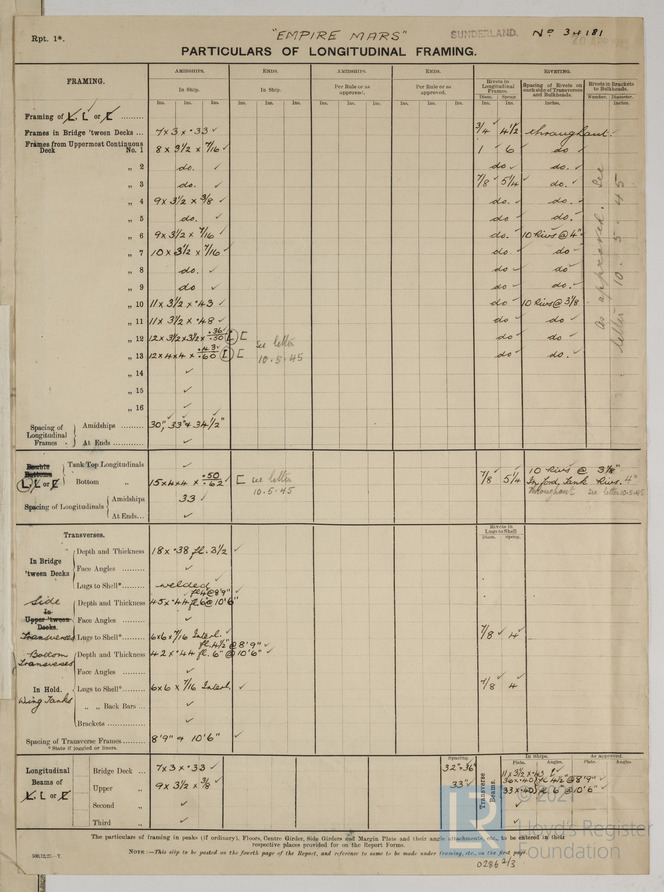 Rpt. 1*.
"EMPIRE MARS"
SUNDERLAND.
No 34181
PARTICULARS OF LONGITUDINAL FRAMING.
FRAMING. AMIDSHIPS. ENDS. AMIDSHIPS. ENDS. RIVETING.
In Ship. In Ship. Per Rule or as approved. Per Rule or as approved. Rivets in Longitudinal Frames. Spacing of Rivets on each side of Transverses and Bulkheads. Rivets in Brackets to Bulkheads.
Ins. Ins. Ins. Ins. Ins. Ins. Ins. Ins. Ins. Ins. Ins. Ins. Diam. Ins. Spcng. Ins. Inches. Number. Diameter. Inches.
Framing of L, L or C ✓
Frames in Bridge 'tween Decks ... 7 x 3 x .33 ✓ 3/4 ✓ 4 1/2 ✓ throughout.
Frames from Uppermost Continuous Deck No. 1 8 x 3 1/2 x 7/16 ✓ 1 ✓ 6 do ✓
„ 2 do. ✓ do ✓ do. ✓
„ 3 do. ✓ 7/8 ✓ 5 1/4 ✓ do. ✓
„ 4 9 x 3 1/2 x 3/8 ✓ do. ✓ do. ✓
„ 5 do. ✓ do. ✓ do. ✓
„ 6 9 x 3 1/2 x 7/16 ✓ do. ✓ 10 Rivs @ 4" ✓
„ 7 10 x 3 1/2 x 7/16 ✓ do ✓ do ✓
„ 8 do. ✓ do ✓ do ✓
„ 9 do ✓ do ✓ do. ✓
„ 10 11 x 3 1/2 x .43 ✓ do ✓ 10 Rivs @ 3 7/8
„ 11 11 x 3 1/2 x .48 ✓ do ✓ do ✓
„ 12 12 x 3 1/2 x 3 1/2 x .36/.50 [ [ do ✓ do ✓
„ 13 12 x 4 x 4 x .43/.60 [ [ do ✓ do. ✓
See letter
10.5.45
As approved. See
letter 10.5.45
„ 14 ✓
„ 15 ✓
„ 16 ✓
Spacing of Longitudinal Frames Amidships .......... 30", 33" & 34 1/2"
At Ends ............ ✓
Double Bottoms L, L or C
Tank Top Longitudinals ✓
Bottom „ 15 x 4 x 4 x .50/.62 ✓ [ see letter 10.5.45 7/8 ✓ 5 1/4 ✓ 10 Rivs @ 3 1/8"
Throughout See letter 10.5.45
Spacing of Longitudinals Amidships 33 ✓
At Ends... ✓
Transverses.
Rivets in Lugs to Shell
Diam. Spcng.
In Bridge 'tween Decks
Depth and Thickness 18 x .38 fl. 3 1/2 ✓
Face Angles ...... ✓
Lugs to Shell*........ welded ✓
Side
In Upper 'tween Decks.
Transverses
fl 4 @ 8'9" ✓
Depth and Thickness 45 x .44 fl 6 @ 10'6"
Face Angles ...... ✓
Lugs to Shell*........ 6 x 6 x 7/16 Interl. ✓ 7/8 ✓ 4 ✓
Bottom Transverses
fl. 4 1/2 @ 8'9" ✓
Depth and Thickness 42 x .44 fl. 6" @ 10'6" ✓
Face Angles ...... ✓
In Hold.
Wing Tanks
Lugs to Shell*........ 6 x 6 x 7/16 Interl. ✓ 7/8 ✓ 4 ✓
„ „ Back Bars ... ✓
Brackets ............ ✓
Spacing of Transverse Frames ......... 8'9" & 10'6" ✓
* State if joggled or liners.
Longitudinal Beams of L, L or C
Spacing.
Transverse Beams.
In Ships. As Approved.
Plate. Angles. Plate. Angles.
Bridge Deck ... 7 x 3 x .33 ✓ 32"-36" 11 x 3 1/2 x .43
Upper „ 9 x 3 1/2 x 3/8 ✓ 33" ✓ 36 x .40 fl 4 1/2 @ 8'9" ✓
33 x .40 fl 6" @ 10'6" ✓
Second „ ✓ ✓
Third „ ✓ ✓
The particulars of framing in peaks (if ordinary), Floors, Centre Girder, Side Girders and Margin Plate and their angle attachments, etc., to be entered in their
respective places provided for on the Report Forms.
NOTE:—This slip to be posted on the fourth page of the Report, and reference to same to be made under framing, etc., on the first page.
0286 2/3
LR
© 2021
Lloyd's Register
Foundation